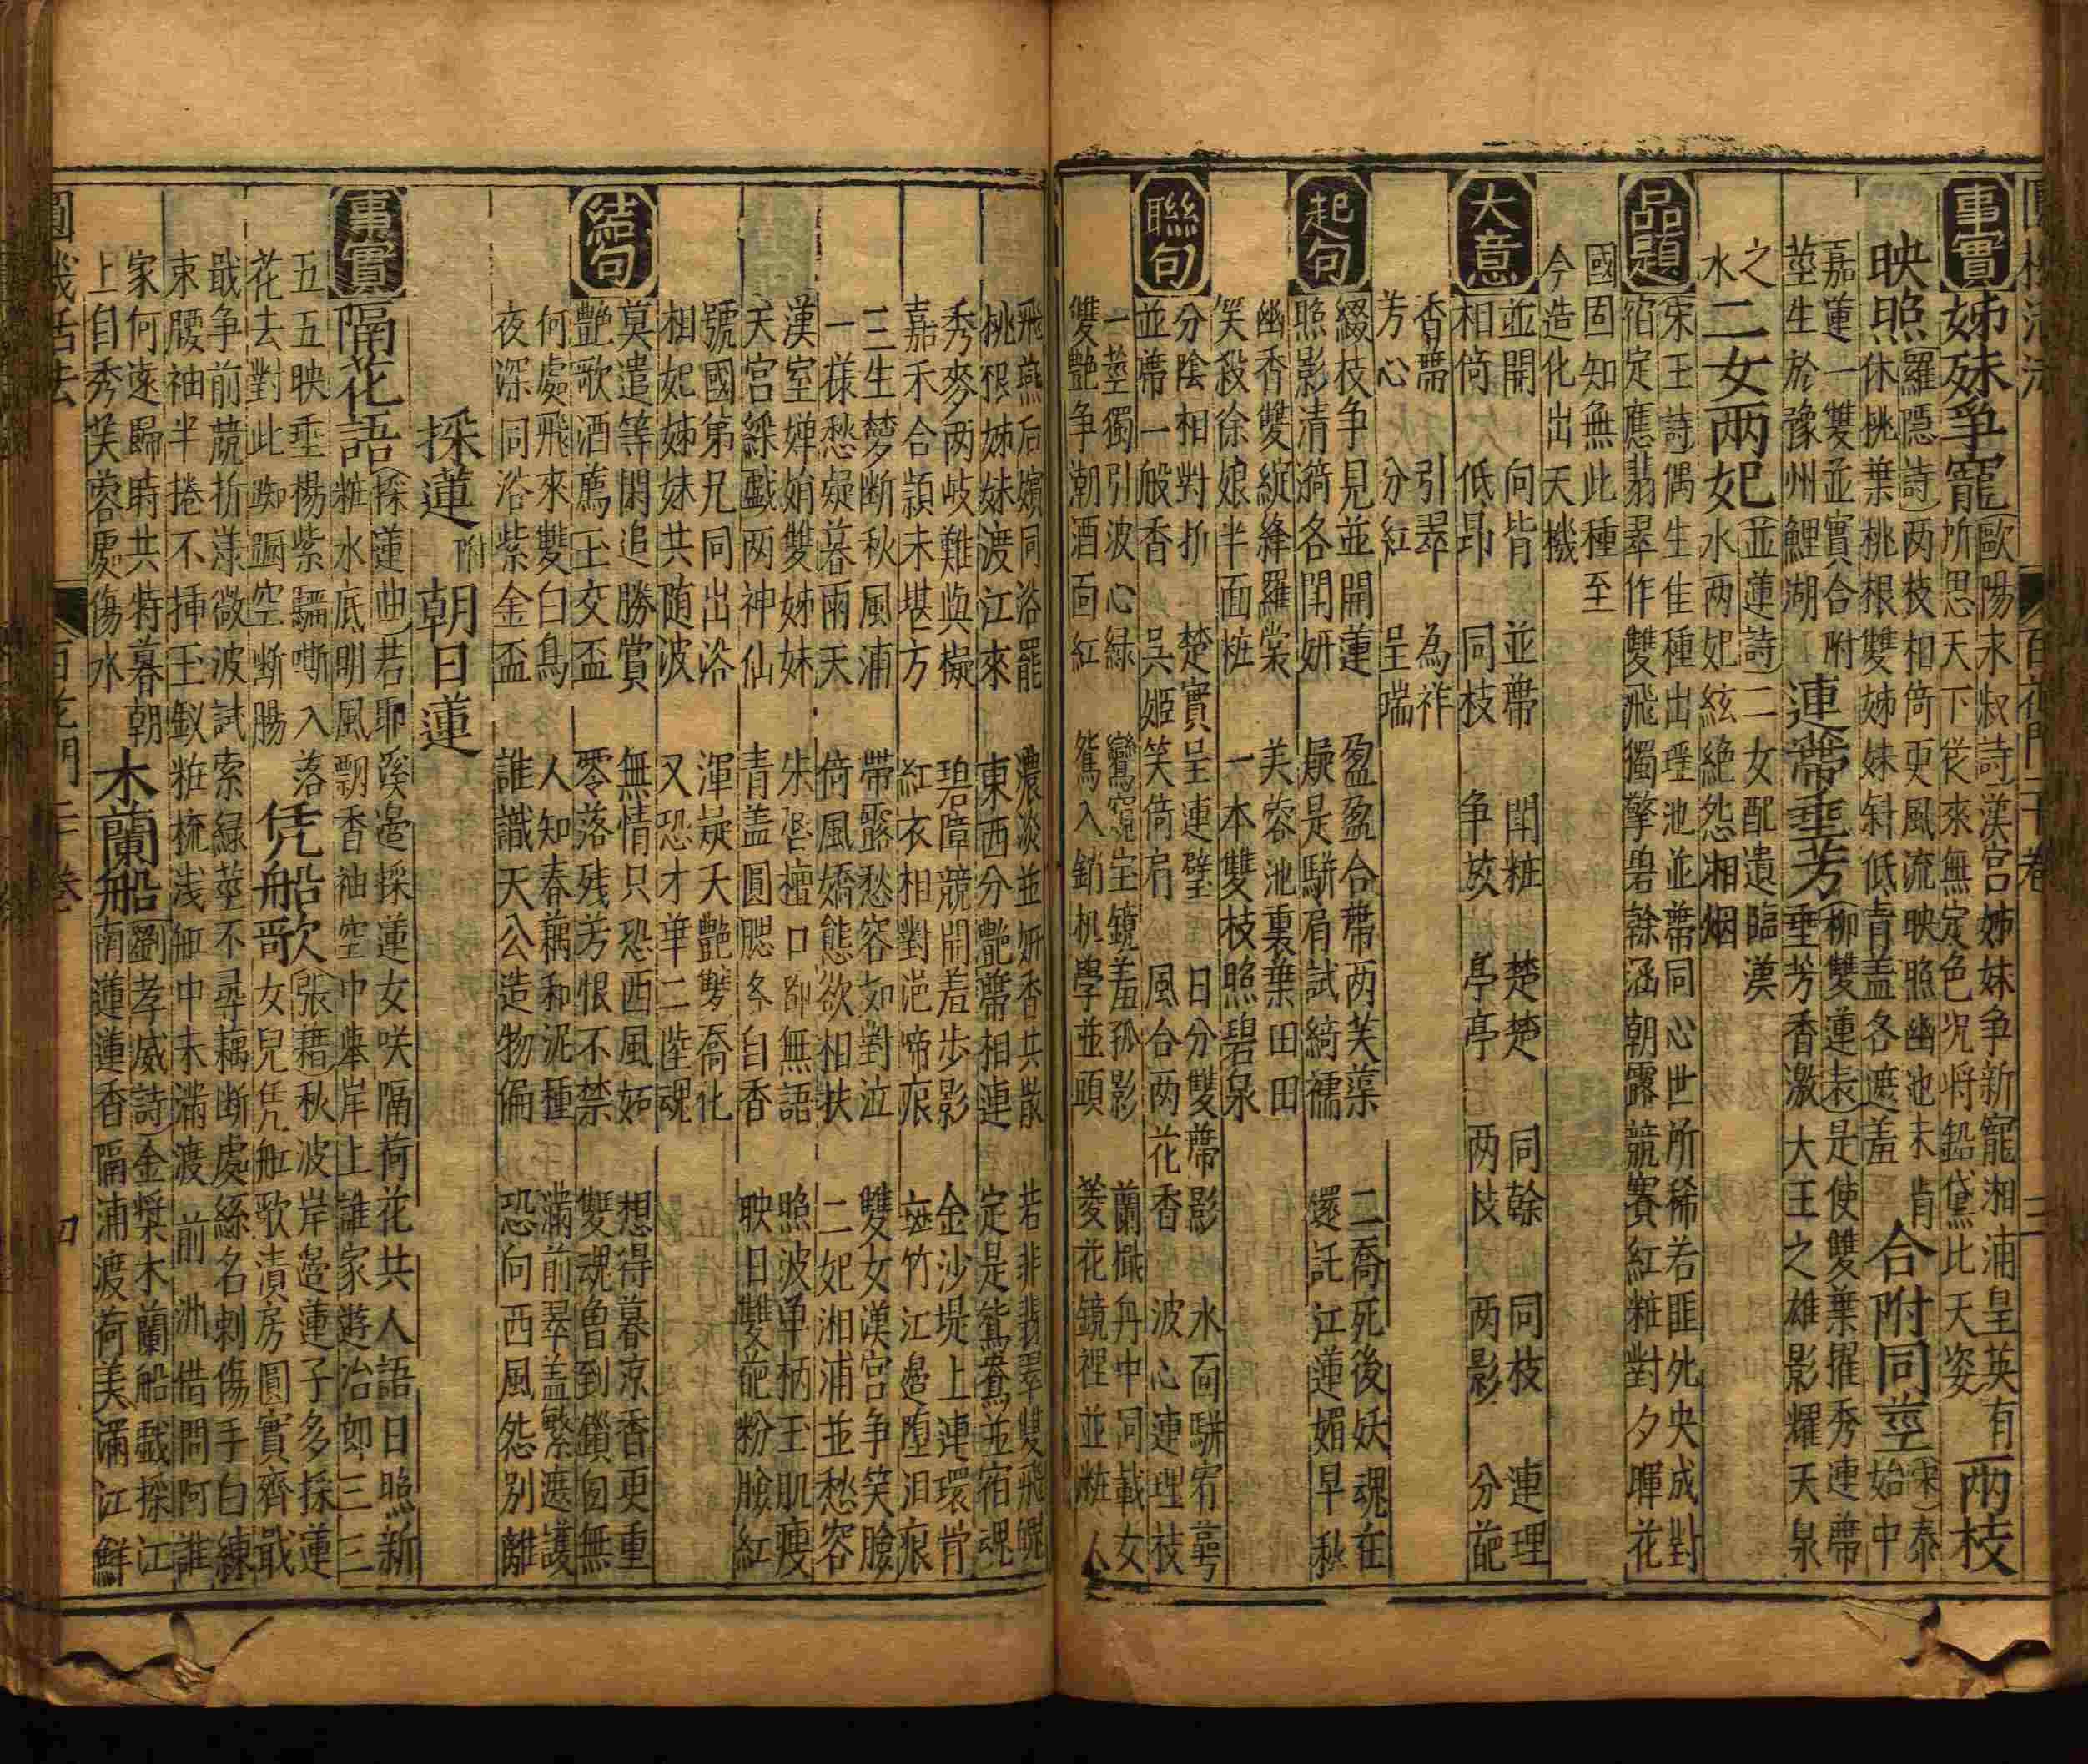 事實
姊妹爭寵
歐陽永叔詩漢宮姊妹爭新寵湘浦皇英有
所思天下從來無定色况将鉛黛比天姿
兩枝
映照
羅隱詩两枝相倚更風流映照幽池未肯
休桃葉桃根雙姊妹斜低青盖各遮羞
合附同莖
宋泰
始中
嘉蓮一雙並實合附
莖生於豫州鯉湖
連蒂垂芳
柳雙蓮表是使雙葉擢秀連蒂
垂芳香激大王之雄影耀天泉
之
水
二女两妃
並蓮詩二女配遺臨漢
水两妃絃絶怨湘烟
品題
宋王詩偶生佳種出瑶池並蒂同心世所稀若匪死央成對
宿定應翡翠作雙飛獨擎碧榦涵朝露競賽紅粧對夕暉花
國固知無此種至
今造化出天機
大意
並開 向皆 並蒂 閗粧 楚楚 同榦 同枝 連理
相倚 低昂 同枝 争妝 亭亭 两枝 两影 分葩
香霈 引翠 為祥
芳心 分紅 呈端
起句
綴枝争見並開蓮 盈盈合蒂两芙蕖 二喬死後妖魂在
照影清漪各閗妍 疑是駢肩試綺襦 還託江蓮媚早秋
幽香雙綻絳羅裳 芙蓉池裏葉田田
笑殺徐娘半面粧 一本雙枝照碧泉
聯句
分陰相對折 楚實呈連璧 日分雙蒂影 水面駢宕萼
並蒂一般香 吳姬笑倚肩 風合两花香 波心連理枝
一莖獨引波心緑 鸞窺宝鏡羞孤影 蘭檝舟中同載女
雙艶争潮酒面紅 鴛入銷机學並頭 菱花鏡裡並粧人
飛燕后嬪同浴罷 濃淡並妍香共散 若非翡翠雙飛魄
桃根姊妹渡江來 東西分艶蒂相連 定是鴛鴦並宿魂
秀麥两岐難與凝 碧障競開羞歩影 金沙堤上連環骨
嘉禾合頴未堪方 紅衣相對浥啼痕 斑竹江邉堕泪痕
三生夢断秋風浦 帶露愁容如對泣 雙女漢宮争笑臉
一様愁凝暮雨天 倚風嬌態欲相扶 二妃湘浦並愁容
漢室嬋娟雙姊妹 朱唇檀口卻無語 照波单柄玉肌瘦
天宮綵戲两神仙 青盖圓腮各自香 映日雙葩粉臉紅
號國弟兄同出浴 渾疑天艶雙喬化
相妃姊妹共随波 又恐才華二陸魂
結句
莫遣等閑追勝賞 無情只恐西風妬 想得暮凉香更重
艶歌酒薦玉交盃 零落残芳恨不禁 雙魂曽到鎖囱無
何處飛來雙白鳥 人知春藕和泥種 满前翠盖繁遮護
夜深同浴紫金盃 誰識天公造物偏 恐向西風怨别離
採蓮 附 朝日蓮
事實
隔花語
採蓮曲若耶溪邉採蓮女咲隔荷花共人語日照新
粧水底明風飄香袖空中舉岸上誰家遊冶郎三三
五五映垂楊紫騮嘶入落
花去對此踟蹰空断腸
凭船歌
張藉秋波岸邉蓮子多採蓮
女兒凭舡歌漬房圓實齊戢
戢争前競折漾微波試索緑莖不尋藕断處絲名刺傷手白練
束腰袖半捲不挿玉釵粧梳浅舡中未满渡前洲借問阿誰
家何遠歸時共特暮朝
上自秀芙蓉處傷水
木蘭船
劉孝威詩金槳木蘭船戲採江
南蓮蓮香隔浦渡荷美滿江鮮